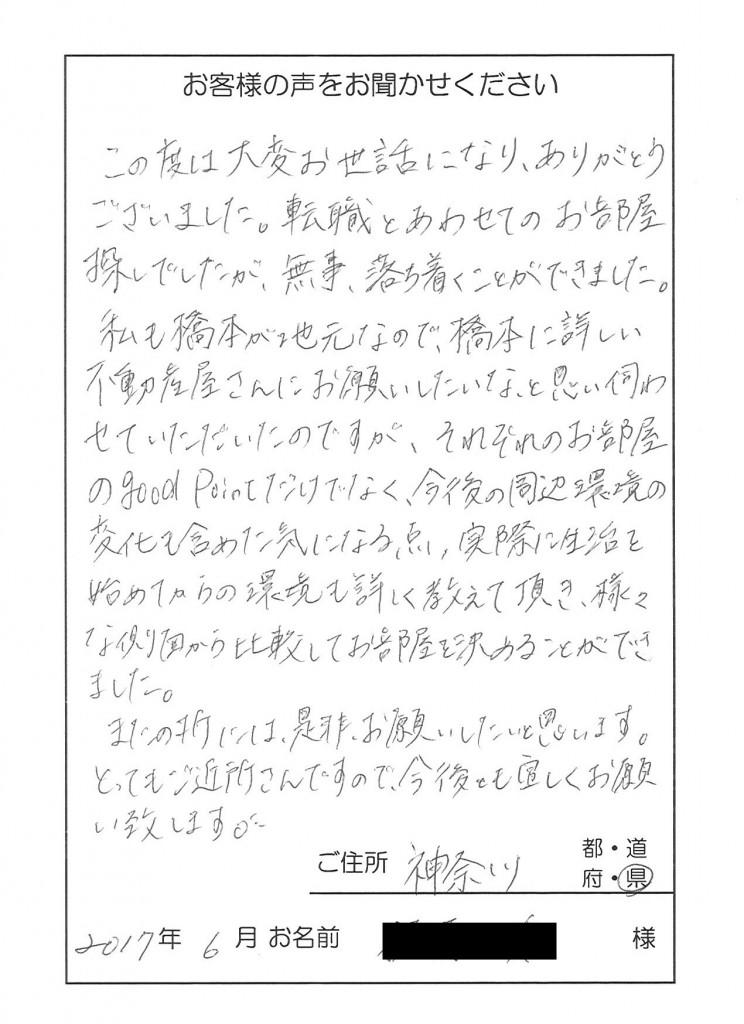 お客様の声をお聞かせください
この度は大変お世話になり、ありがとう
ございました。転職とあわせてのお部屋
探しでしたが、無事、落ち着くことができました。
私も橋本が地元なので、橋本に詳しい
不動産屋さんにお願いしたいな、と思い伺わ
せていただいたのですが、それぞれのお部屋
のgood Pointだけでなく、今後の周辺環境の
変化も含めた気になる点、実際に生活を
始めてからの環境も詳しく教えて頂き、様々
な側面から比較してお部屋を決めることができ
ました。
またの折には、是非、お願いしたいと思います。
とってもご近所さんですので、今後とも宜しくお願
い致します。
ご住所 神奈川 都・道
府・県
2017年 6月 お名前 様